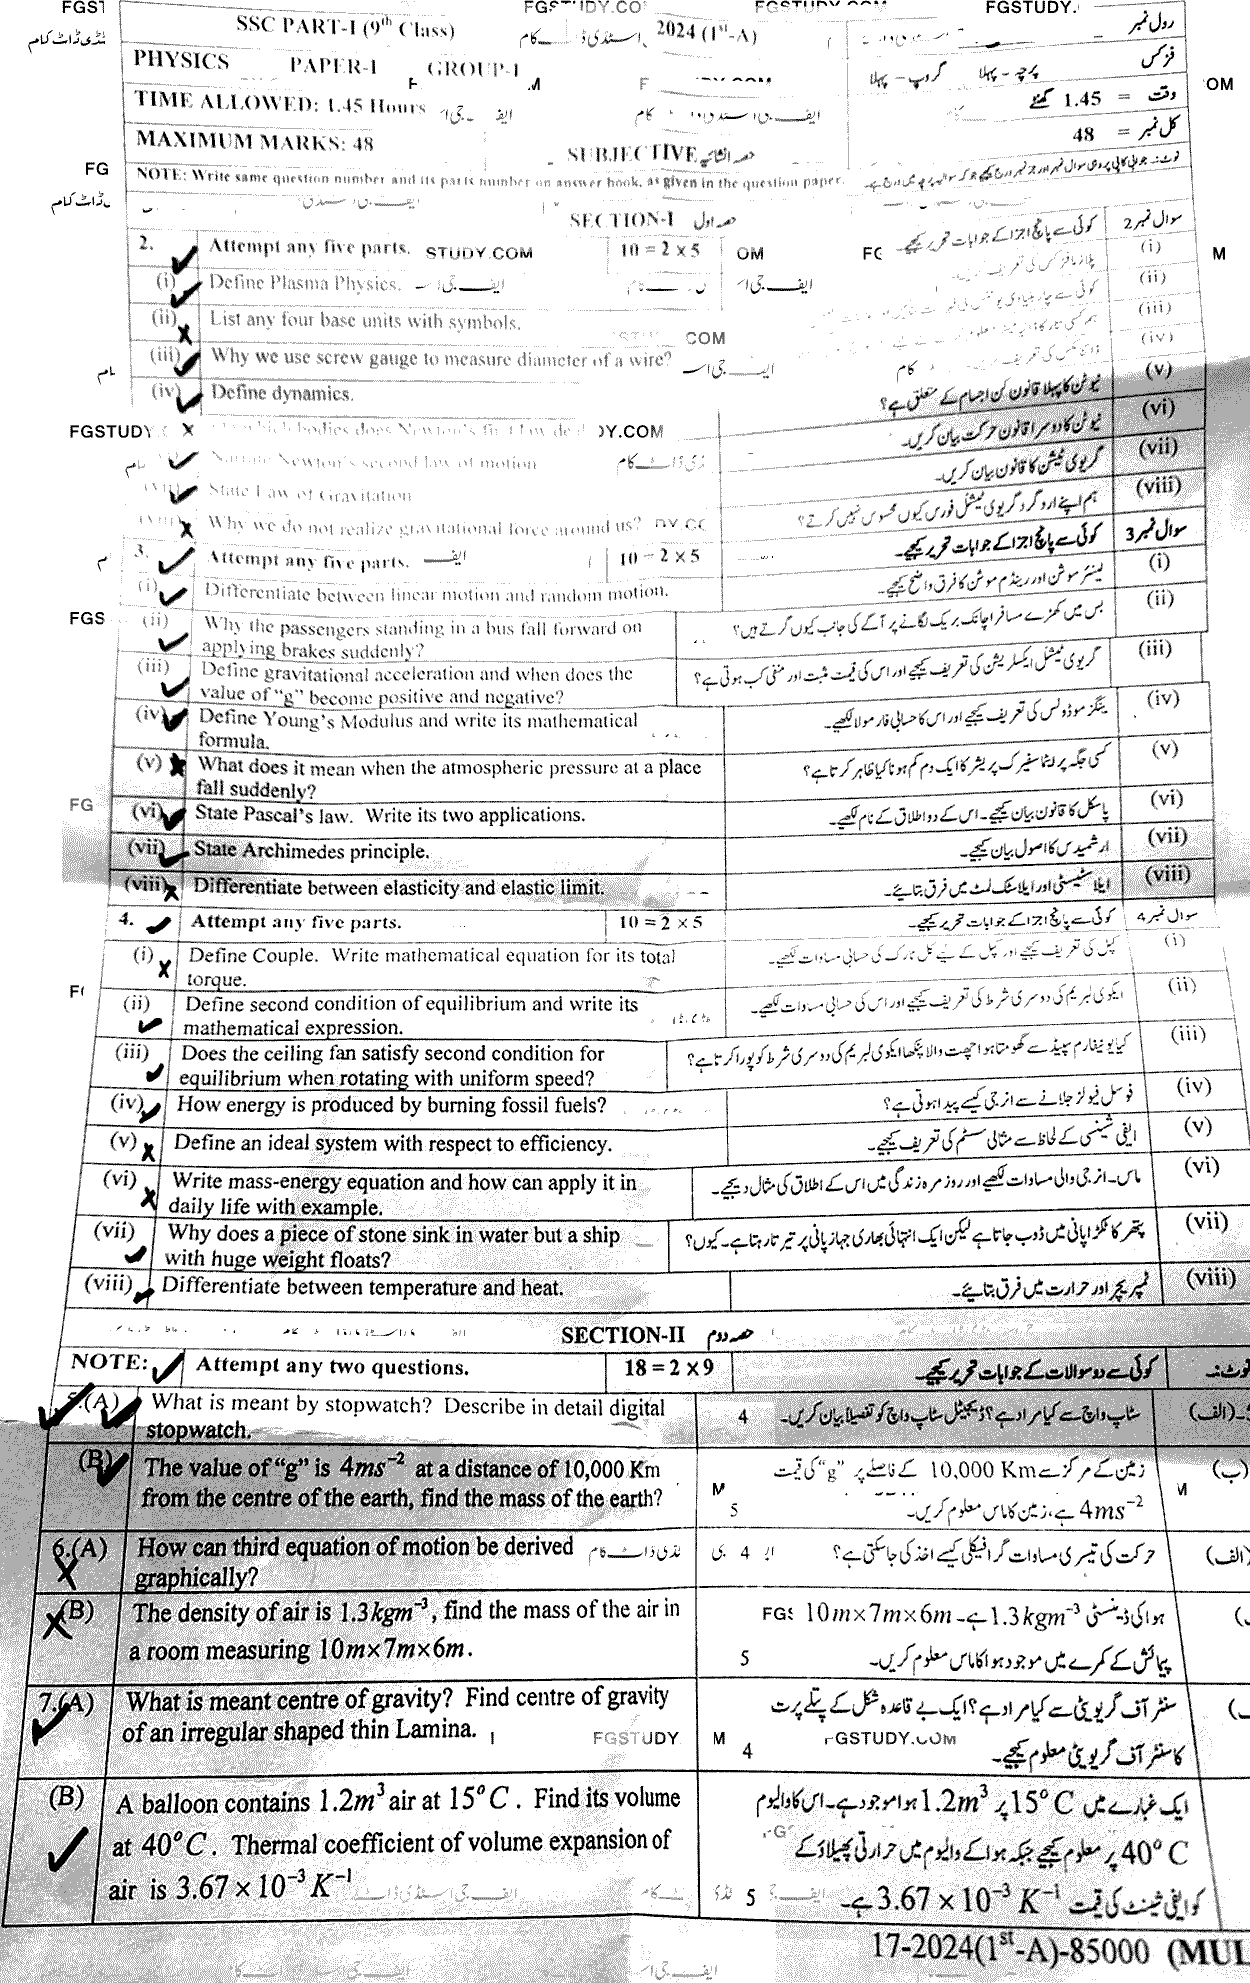 SSC PART-I (9th Class) 2024 (1st-A) رول نمبر
PHYSICS PAPER-I GROUP-I گروپ - پہلا پرچہ - پہلا فزکس
TIME ALLOWED: 1.45 Hours وقت = 1.45 گھنٹے
MAXIMUM MARKS: 48 کل نمبر = 48
SUBJECTIVE حصہ انشائیہ
NOTE: Write same question number and its parts number on answer book, as given in the question paper.
SECTION-I حصہ اول
2. Attempt any five parts. 10 = 2 x 5 کوئی سے پانچ اجزا کے جوابات تحریر کیجیے۔ سوال نمبر 2
(i) Define Plasma Physics. (i)
(ii) List any four base units with symbols. (ii)
(iii) Why we use screw gauge to measure diameter of a wire? (iii)
(iv) Define dynamics. (iv)
نیوٹن کا پہلا قانون کن اجسام کے متعلق ہے؟ (v)
Newton's second law of motion نیوٹن کا دوسرا قانون حرکت بیان کریں۔ (vi)
State Law of Gravitation گریوی ٹیشن کا قانون بیان کریں۔ (vii)
(viii) Why we do not realize gravitational force around us? ہم اپنے ارد گرد گریوی ٹیشنل فورس کیوں محسوس نہیں کرتے؟ (viii)
3. Attempt any five parts. 10 = 2 x 5 کوئی سے پانچ اجزا کے جوابات تحریر کیجیے۔ سوال نمبر 3
(i) Differentiate between linear motion and random motion. لینئر موشن اور رینڈم موشن کا فرق واضح کیجیے۔ (i)
(ii) Why the passengers standing in a bus fall forward on بس میں کھڑے مسافر اچانک بریک لگانے پر آگے کی جانب کیوں گرتے ہیں؟ (ii)
applying brakes suddenly?
(iii) Define gravitational acceleration and when does the گریوی ٹیشنل ایکسلریشن کی تعریف کیجیے اور اس کی قیمت مثبت اور منفی کب ہوتی ہے؟ (iii)
value of "g" become positive and negative?
(iv) Define Young's Modulus and write its mathematical ینگز موڈولس کی تعریف کیجیے اور اس کا حسابی فارمولا لکھیے۔ (iv)
formula.
(v) What does it mean when the atmospheric pressure at a place کسی جگہ پر ایٹماسفیرک پریشر کا ایک دم کم ہونا کیا ظاہر کرتا ہے؟ (v)
fall suddenly?
(vi) State Pascal's law. Write its two applications. پاسکل کا قانون بیان کیجیے۔ اس کے دو اطلاق کے نام لکھیے۔ (vi)
(vii) State Archimedes principle. ارشمیدس کا اصول بیان کیجیے۔ (vii)
(viii) Differentiate between elasticity and elastic limit. ایلاسٹیسٹی اور ایلاسٹک لمٹ میں فرق بتائیے۔ (viii)
4. Attempt any five parts. 10 = 2 x 5 کوئی سے پانچ اجزا کے جوابات تحریر کیجیے۔ سوال نمبر 4
(i) Define Couple. Write mathematical equation for its total کپل کی تعریف کیجیے اور کپل کے لیے کل ٹارک کی حسابی مساوات لکھیے۔ (i)
torque.
(ii) Define second condition of equilibrium and write its ایکوی لبریم کی دوسری شرط کی تعریف کیجیے اور اس کی حسابی مساوات لکھیے۔ (ii)
mathematical expression.
(iii) Does the ceiling fan satisfy second condition for کیا یونیفارم سپیڈ سے گھومتا ہوا چھت والا پنکھا ایکوی لبریم کی دوسری شرط کو پورا کرتا ہے؟ (iii)
equilibrium when rotating with uniform speed?
(iv) How energy is produced by burning fossil fuels? فوسل فیولز جلانے سے انرجی کیسے پیدا ہوتی ہے؟ (iv)
(v) Define an ideal system with respect to efficiency. ایفی شینسی کے لحاظ سے مثالی سسٹم کی تعریف کیجیے۔ (v)
(vi) Write mass-energy equation and how can apply it in ماس۔انرجی والی مساوات لکھیے اور روز مرہ زندگی میں اس کے اطلاق کی مثال دیجیے۔ (vi)
daily life with example.
(vii) Why does a piece of stone sink in water but a ship پتھر کا ٹکڑا پانی میں ڈوب جاتا ہے لیکن ایک انتہائی بھاری جہاز پانی پر تیرتا رہتا ہے۔ کیوں؟ (vii)
with huge weight floats?
(viii) Differentiate between temperature and heat. ٹمپریچر اور حرارت میں فرق بتائیے۔ (viii)
SECTION-II حصہ دوم
NOTE: Attempt any two questions. 18 = 2 x 9 کوئی سے دو سوالات کے جوابات تحریر کیجیے۔ نوٹ:۔
(A) What is meant by stopwatch? Describe in detail digital 4 سٹاپ واچ سے کیا مراد ہے؟ ڈیجیٹل سٹاپ واچ کو تفصیلاً بیان کریں۔ (الف)
stopwatch.
(B) The value of "g" is 4ms⁻² at a distance of 10,000 Km زمین کے مرکز سے 10,000 Km کے فاصلے پر "g" کی قیمت (ب)
from the centre of the earth, find the mass of the earth? 5 4ms⁻² ہے، زمین کا ماس معلوم کریں۔
6.(A) How can third equation of motion be derived 4 حرکت کی تیسری مساوات گرافیکلی کیسے اخذ کی جا سکتی ہے؟ (الف)
graphically?
(B) The density of air is 1.3kgm⁻³, find the mass of the air in ہوا کی ڈینسٹی 1.3kgm⁻³ ہے۔ 10m×7m×6m
a room measuring 10m×7m×6m. 5 پیمائش کے کمرے میں موجود ہوا کا ماس معلوم کریں۔
7.(A) What is meant centre of gravity? Find centre of gravity سنٹر آف گریویٹی سے کیا مراد ہے؟ ایک بے قاعدہ شکل کے پتلے پرت
of an irregular shaped thin Lamina. 4 کا سنٹر آف گریویٹی معلوم کیجیے۔
FGSTUDY FGSTUDY.COM
(B) A balloon contains 1.2m³ air at 15°C. Find its volume ایک غبارے میں 15°C پر 1.2m³ ہوا موجود ہے۔ اس کا والیوم
at 40°C. Thermal coefficient of volume expansion of 40°C پر معلوم کیجیے جبکہ ہوا کے والیوم میں حرارتی پھیلاؤ کے
air is 3.67×10⁻³K⁻¹ 5 کوایفی شینٹ کی قیمت 3.67×10⁻³ K⁻¹ ہے۔
17-2024(1st-A)-85000 (MUL